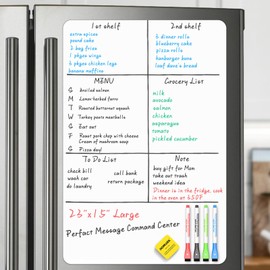 1st shelf
extra spices
pound cake
2 bag fries
1 pkgen wings
6 pkgen chicken legs
banana muffins
2nd shelf
6 dinner rolls
blueberry cake
pizza rolls
hamburger buns
loaf dave's bread
MENU
S broiled salmon
M Lemon-tacked farro
T Roasted butternut squash
W Turkey pesto meatballs
T Eat out
F Roast pork chop with cheese
Cream of mushroom soup
S Pizza day!
Grocery List
milk
avocado
salmon
chicken
asparagus
tomato
pickled cucumber
To Do List
check bill
wash car
do laundry
call bank
return package
Note
buy gift for Mom
take out trash
weekend idea
Dinner is in the fridge, cook
in the oven at 450F
23"x15" Large
Perfect Message Command Center